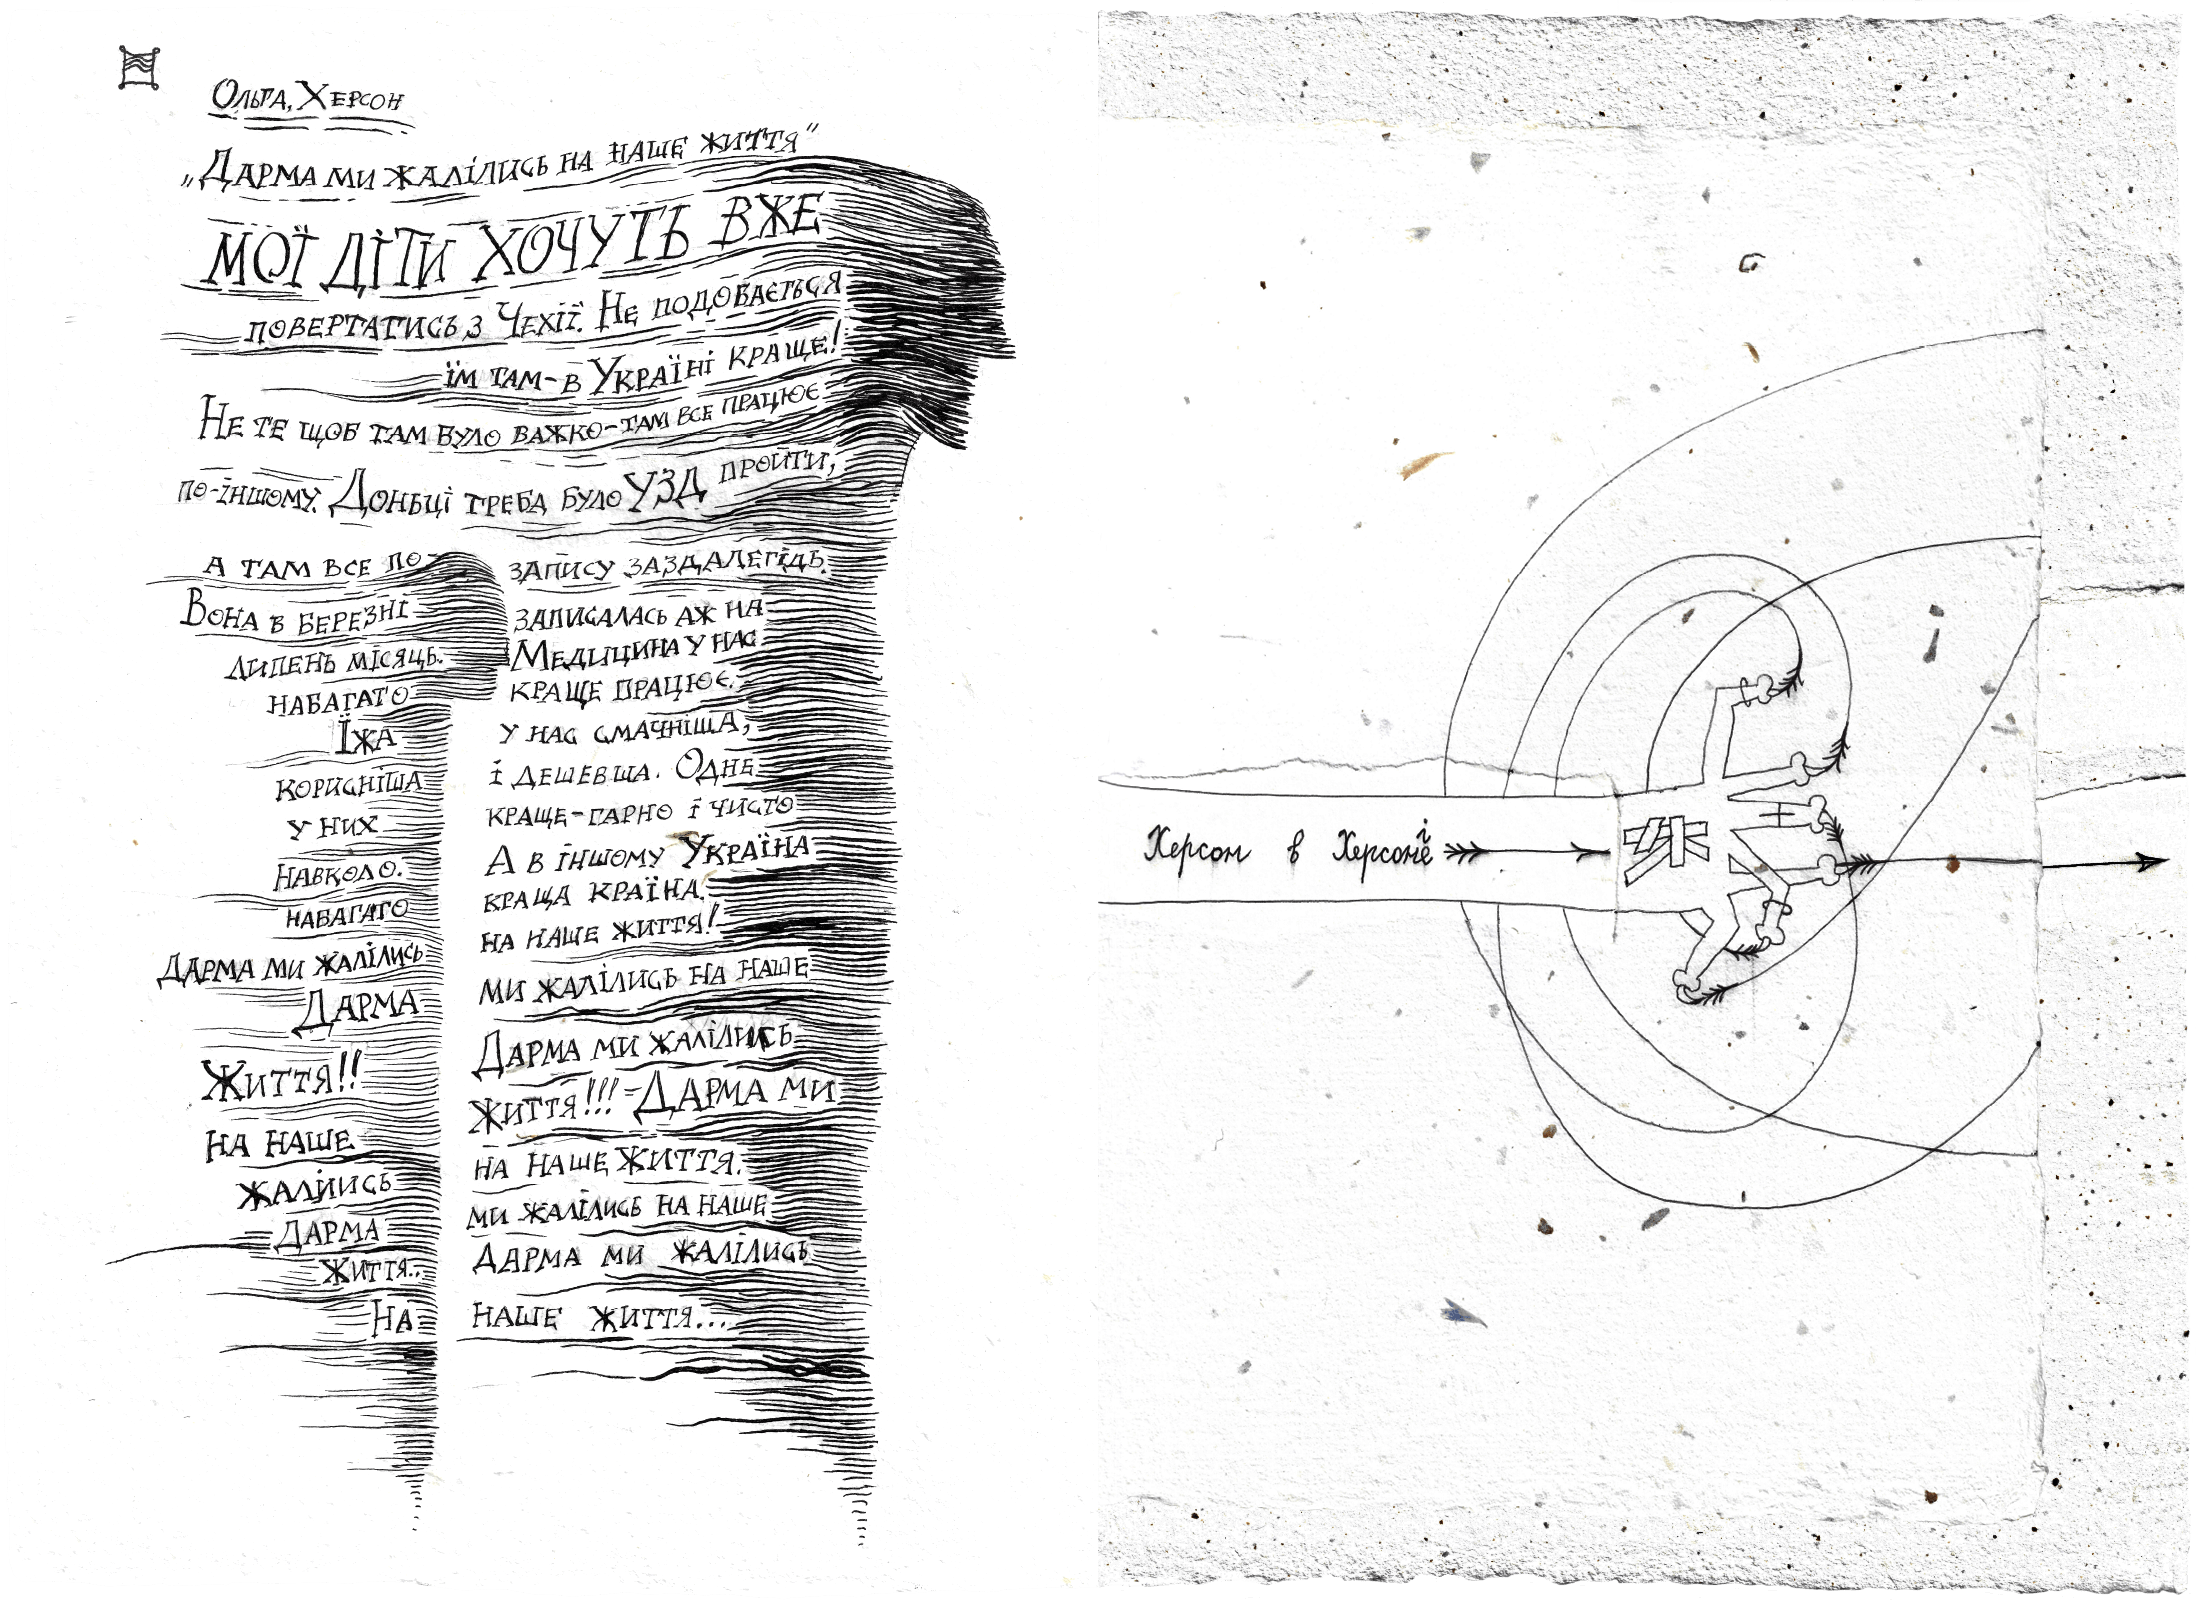 Ольга, Херсон
„Дарма ми жалілись на наше життя"
МОЇ ДІТИ ХОЧУТЬ ВЖЕ
повертатись з Чехії. Не подобається
їм там – в Україні краще!
Не те щоб там було важко – там все працює
по-іншому. Доньці треба було УЗД пройти,
а там все по- запису заздалегідь.
Вона в березні записалась аж на
липень місяць. Медицина у нас
набагато краще працює.
Їжа у нас смачніша,
корисніша і дешевша. Одне
у них краще – гарно і чисто
навколо. А в іншому Україна
набагато краща країна.
Дарма ми жалілись на наше життя!
Дарма ми жалілись на наше
Життя!! Дарма ми жалілись
на наше життя!!! – Дарма ми
жалілись на наше життя.
Дарма ми жалілись на наше
життя... Дарма ми жалілись
На наше життя...
Херсон в Херсоне
і